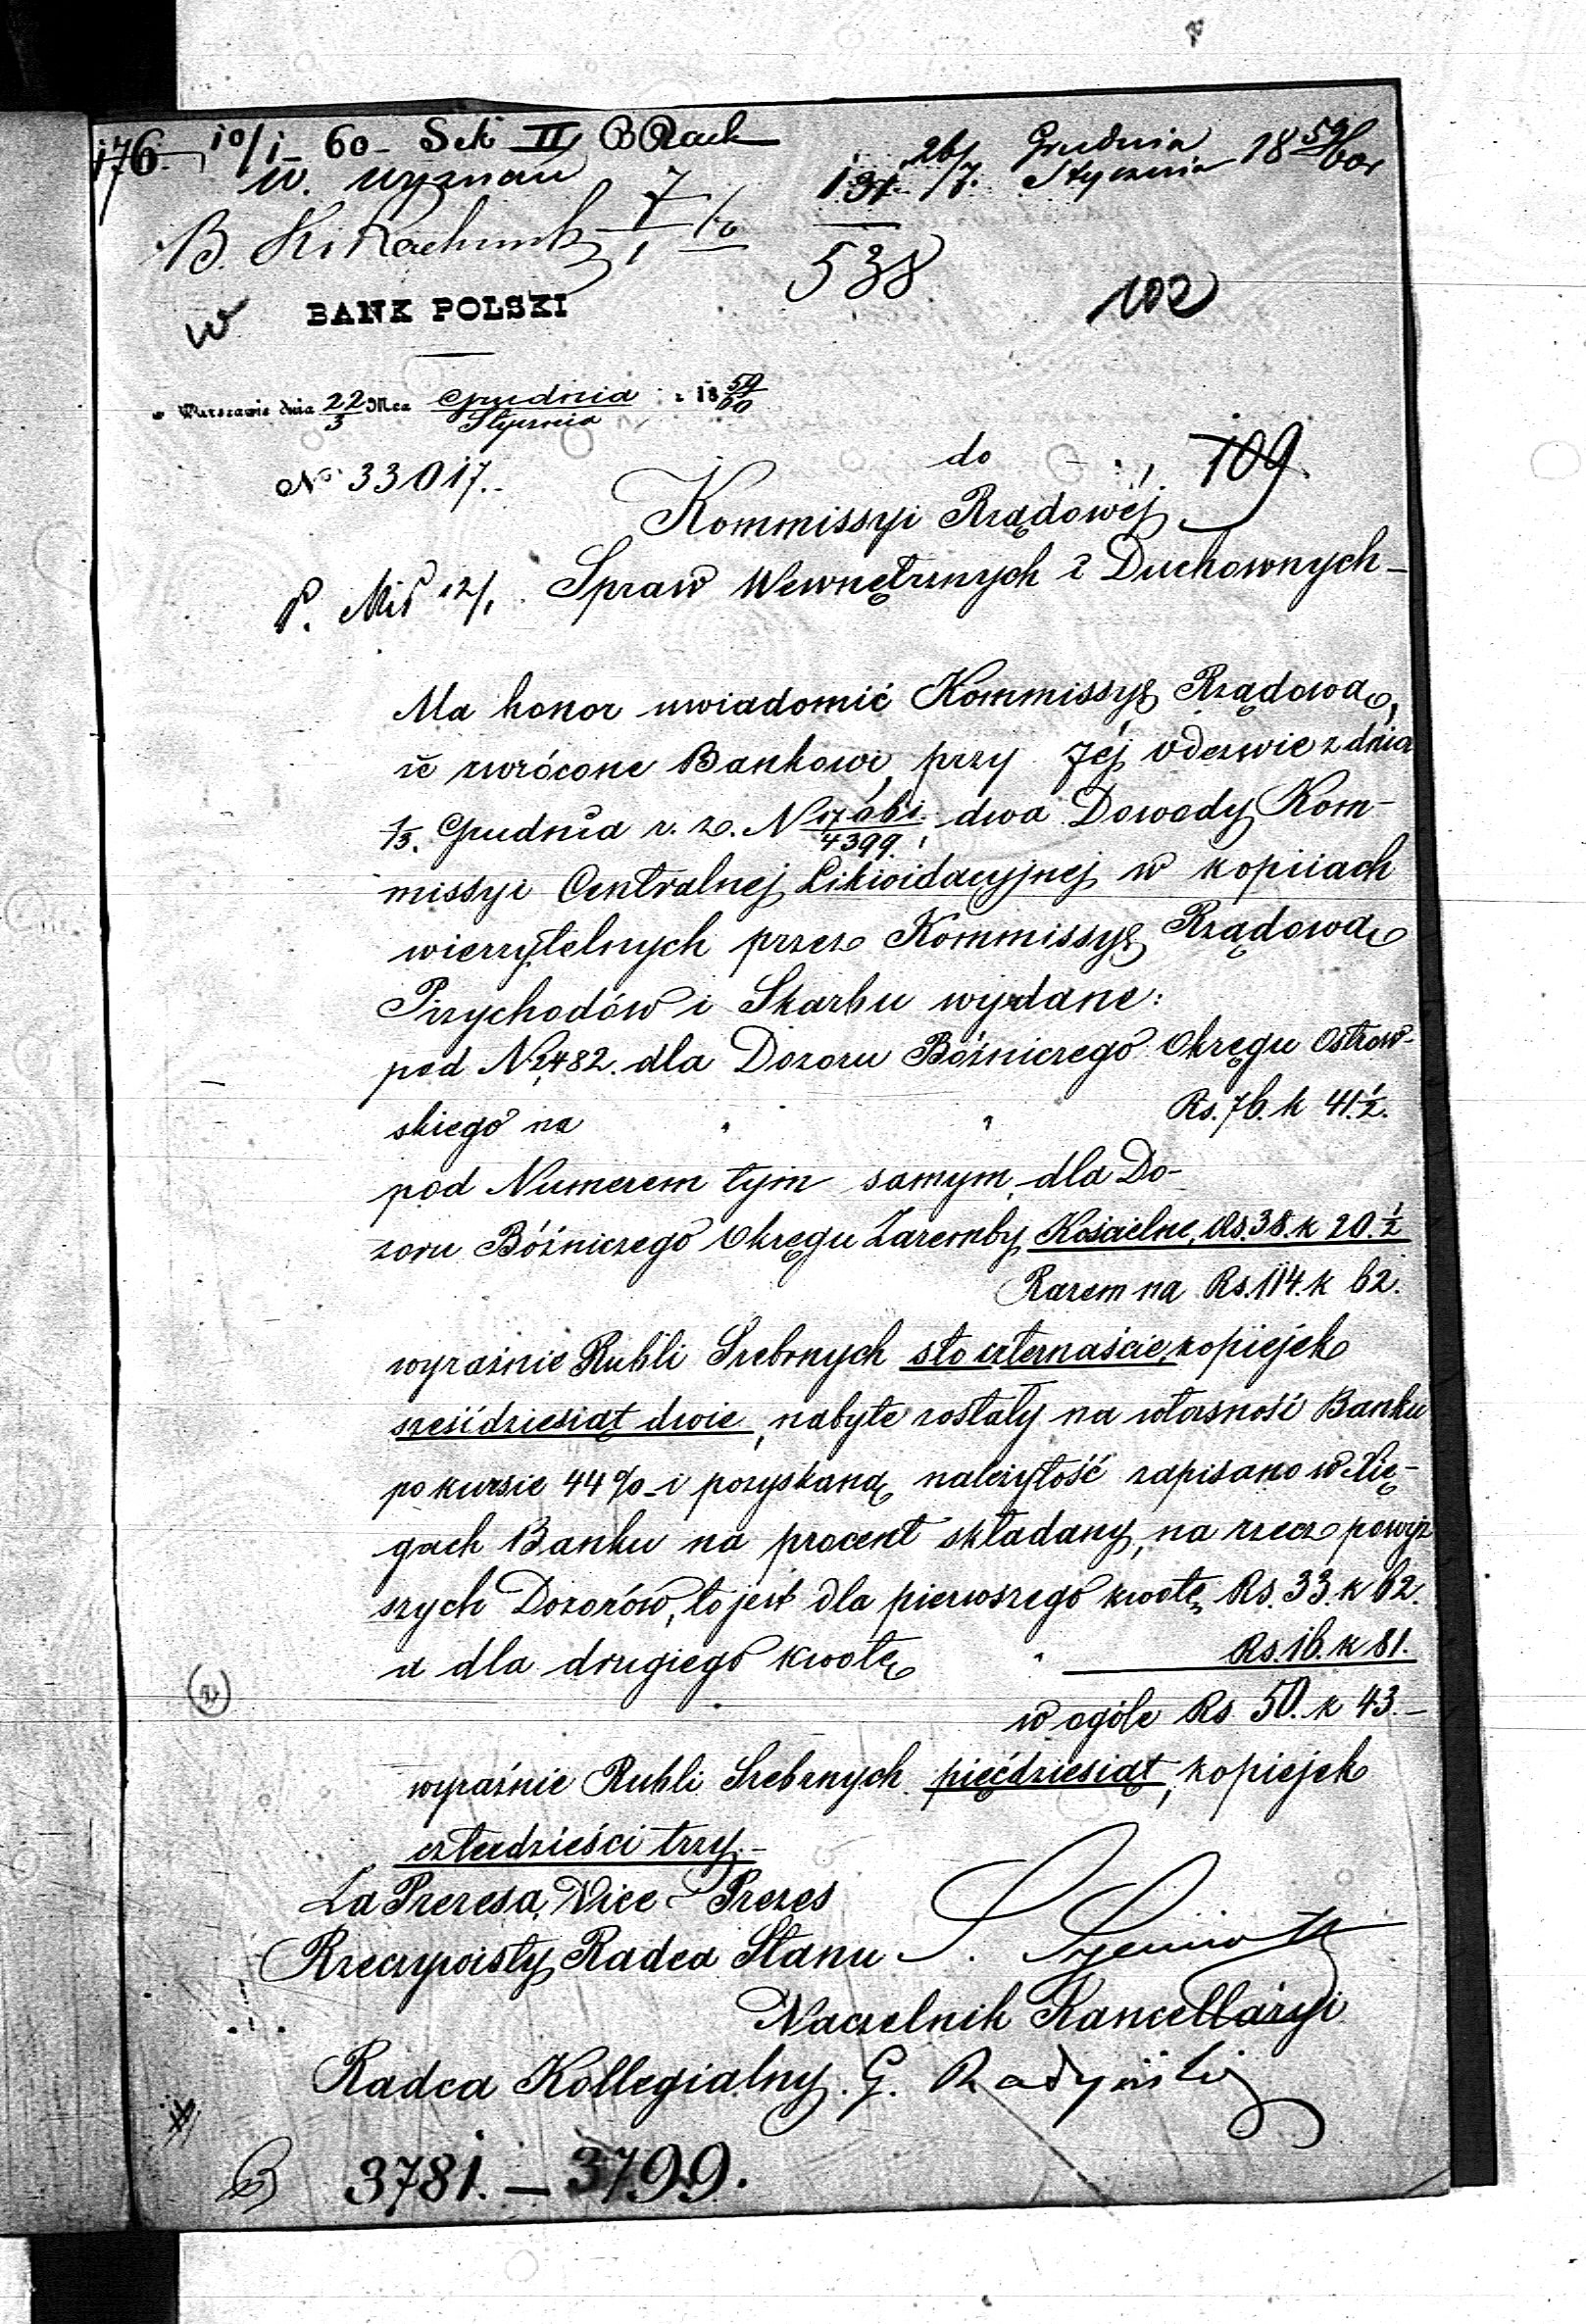 176 10/1 60 Sek II B Rach
W. Wyznań
26/7. Grudnia Stycznia 18 59/60
131
538
7/1
102
w
BANK POLSKI
w Warszawie dnia 22/3 Mca Grudnia/Stycznia 18 59/60
No 33017.
do
109
Kommissyi Rządowéj
Spraw Wewnętrznych i Duchownych
P. 12/1
Ma honor uwiadomić Kommissyę Rządową,
że zwrócone Bankowi, przy Jéj odezwie z dnia
1/3. Grudnia r. z. N 4399. dwa Dowody Kom-
missyi Centralnej Likwidacyjnej w kopiiach
wierzytelnych przez Kommissyę Rządową
Przychodów i Skarbu wydane:
pod No 2482. dla Dozoru Bóżniczego Okręgu Ostrow-
skiego na Rs. 76. k 41 1/2.
pod Numerem tym samym, dla Do-
zoru Bóżniczego Okręgu Zaremby Kościelne, Rs. 38. k 20. 1/2
Razem na Rs. 114. k 62.
wyraźnie Rubli Srebrnych sto czternaście, kopiejek
sześćdziesiąt dwie, nabyte zostały na własność Banku
po kursie 44% i pozyskaną należytość zapisano w Xię-
gach Banku na procent składany, na rzecz powyż
szych Dozorów, to jest dla pierwszego kwotę Rs. 33. k 62.
a dla drugiego kwotę Rs. 16. k 81.
w ogóle Rs 50. k 43.
wyraźnie Rubli Srebrnych pięćdziesiąt, kopiejek
czterdzieści trzy.
Za Prezesa, Vice-Prezes
Rzeczywisty Radca Stanu
Naczelnik Kancellaryi
Radca Kollegialny. G. Radyński
3781. – 3799.